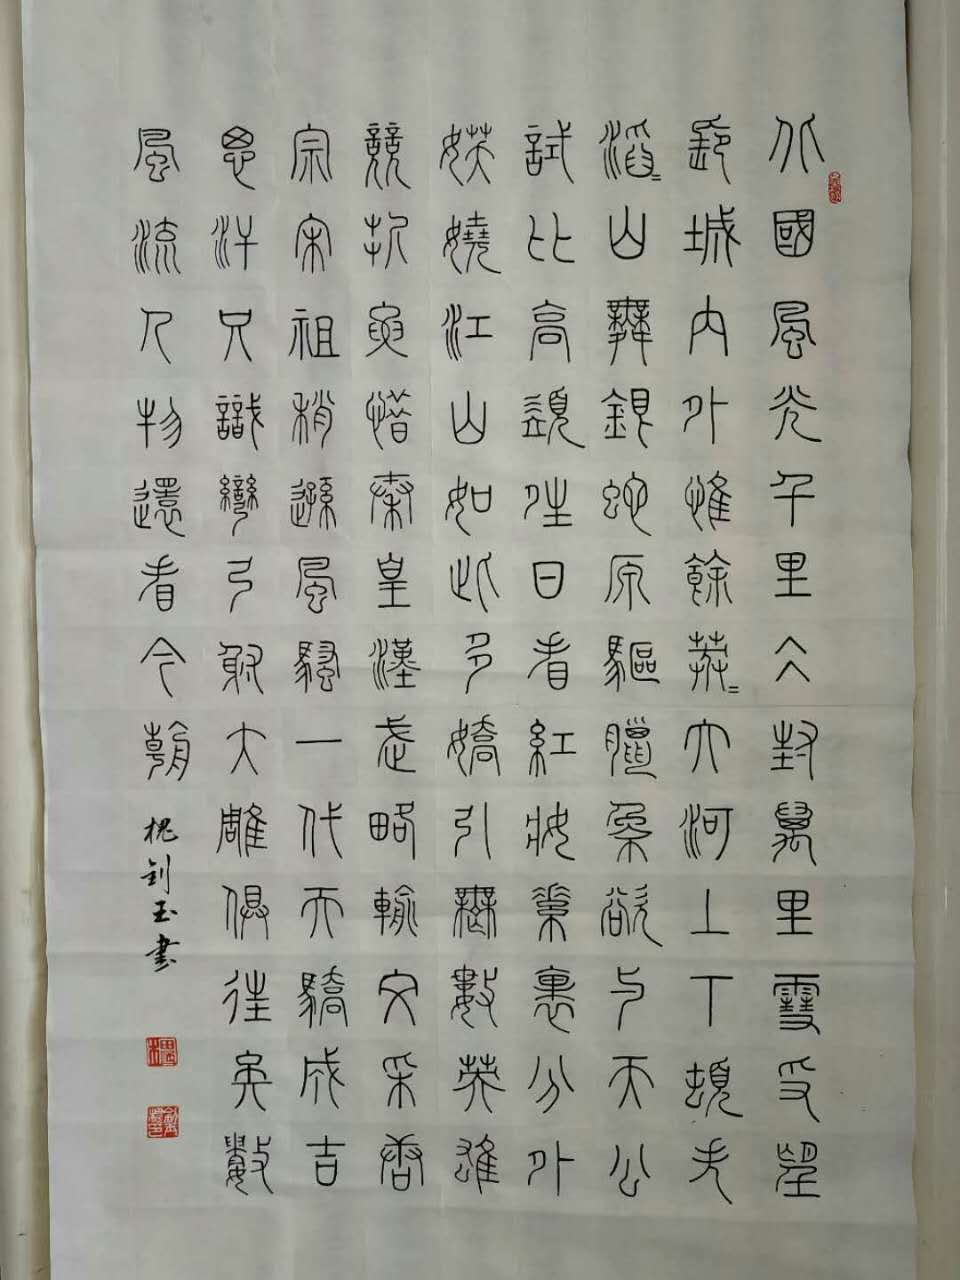 北國風光千里仌封萬里雪望
城內外惟餘莽〓大河上下頓失
滔〓山舞銀蛇原驅臘象欲与天公
試比高須晴日看紅妝素裹分外
妖嬈江山如此多嬌引無數英雄
競折腰惜秦皇漢武略輸文采唐
宗宋祖稍遜風騷一代天驕成吉
思汗只識彎弓射大雕俱往矣數
風流人物還看今朝
槐釗玉書